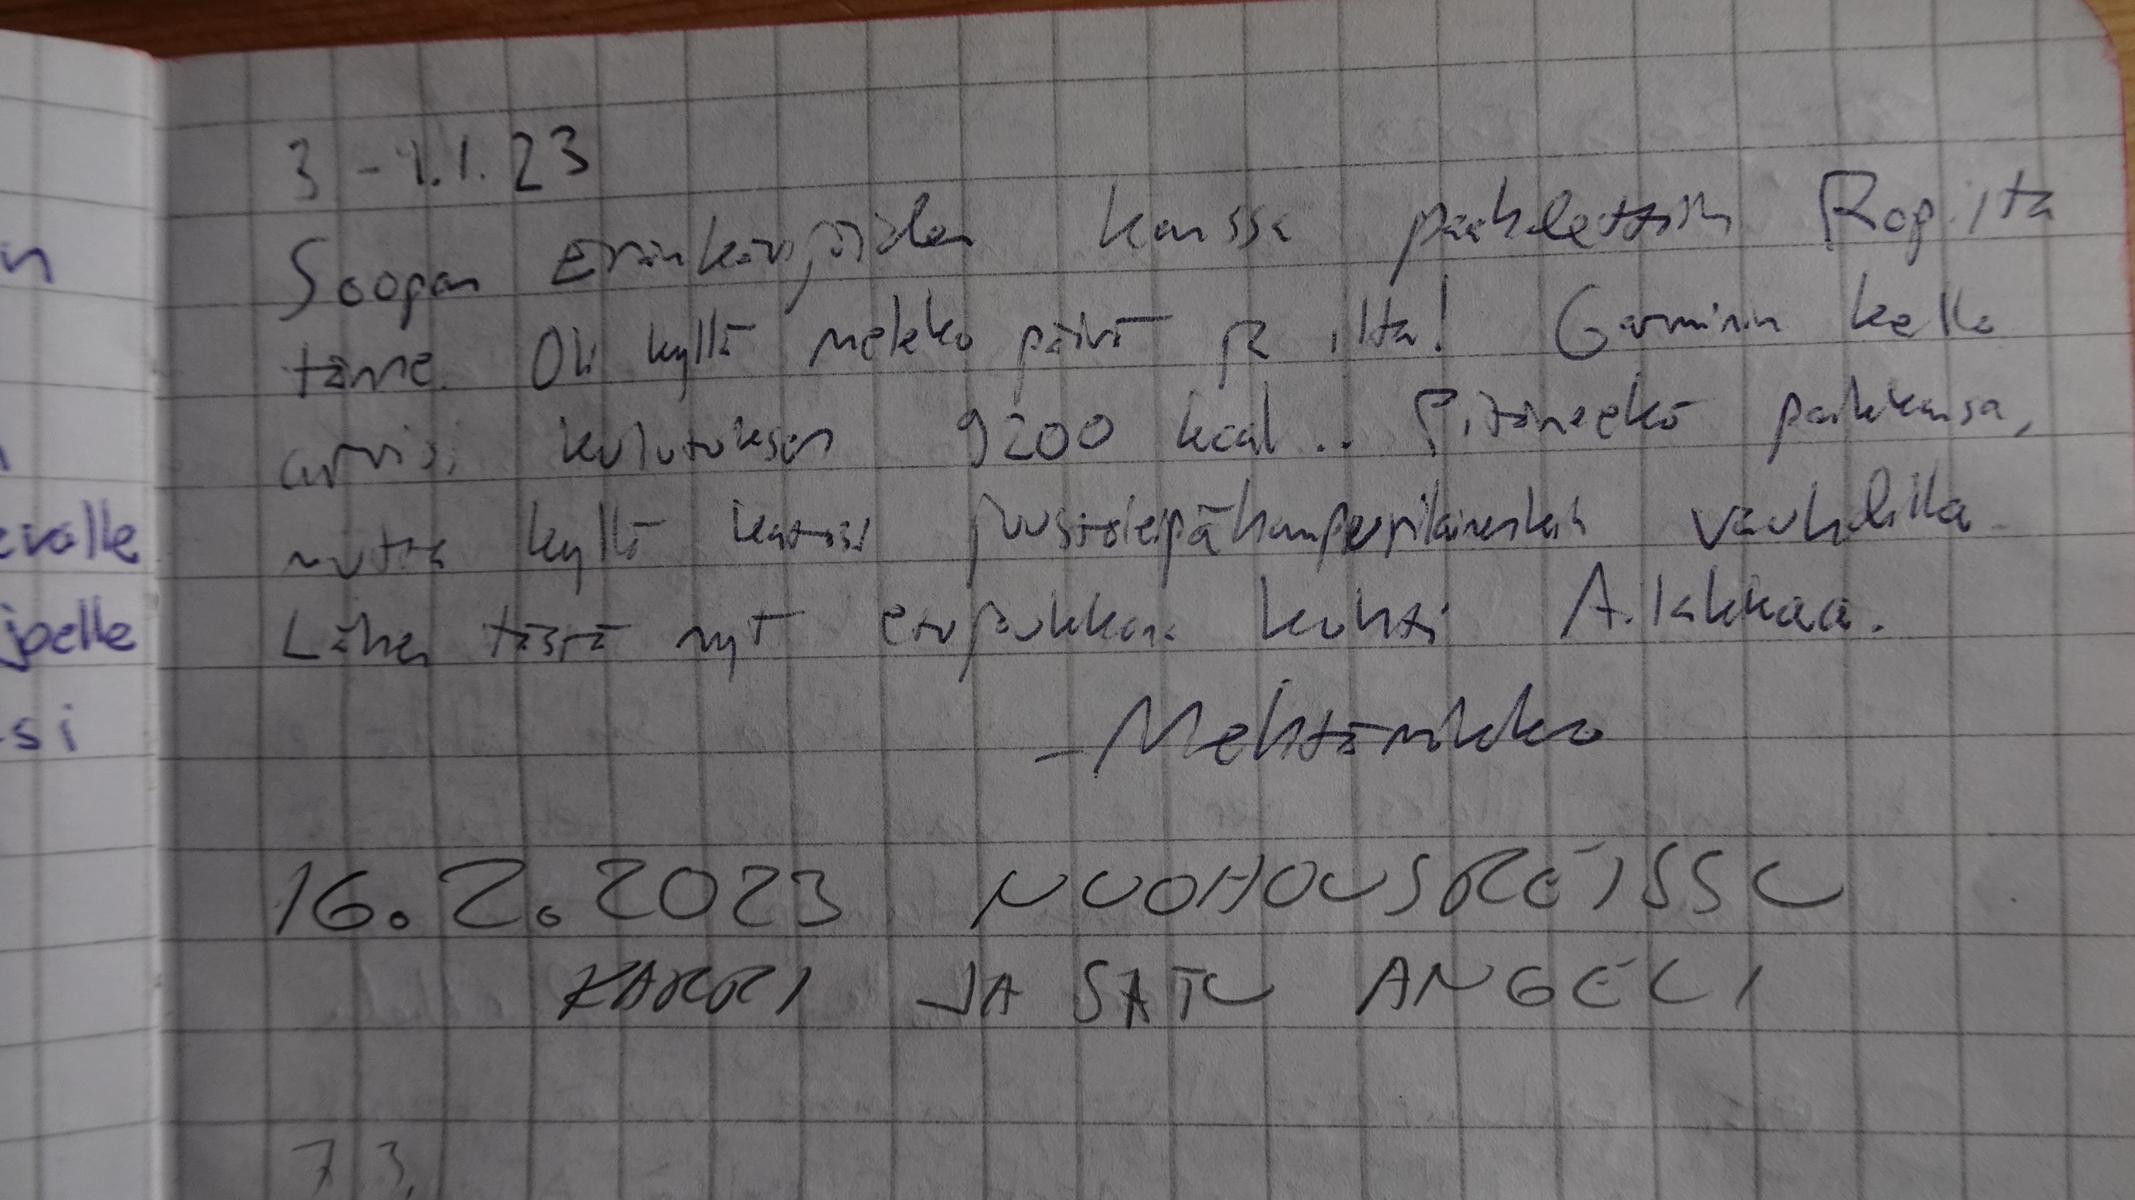 n
evalle
joelle
si
3 - 4.1.23
Soopan Eränkävijöiden kanssa paahalettiin Rop.ilta
tänne. Oli kyllä melekko päivä ja ilta! Garminin kello
arvioi kulutuksen 9200 kcal.. Pitäneekö paikkansa,
mutta kyllä katosi juustoleipähampurilainenkin vauhdilla
Lähen tästä nyt etujoukkona kohti A.lakkaa.
- Mehtämikko
16.2.2023 NUOHOUSREISSU
KARRI JA SATU ANGELI
7 3.